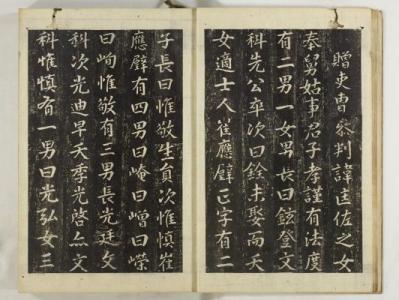 贈吏曹參判諱匡佐之女
奉舅姑事君子孝謹有法度
有二男一女男長曰鉉登文
科先公卒次曰銓未娶而夭
女適士人崔應壁正字有二
子長曰惟敬生員次惟慎崔
應壁有四男曰崦曰嶒曰嶸
曰峋惟敬有三男長光廷文
科次光迪早夭季光啓亦文
科惟慎有一男曰光弘女三